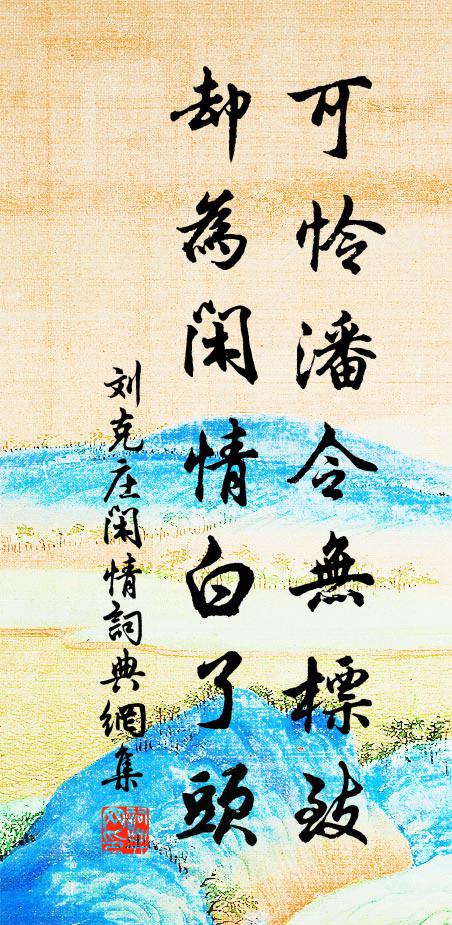 可憐潘令無標致
却為閑情白了頭
刘克庄閑情詞典網集